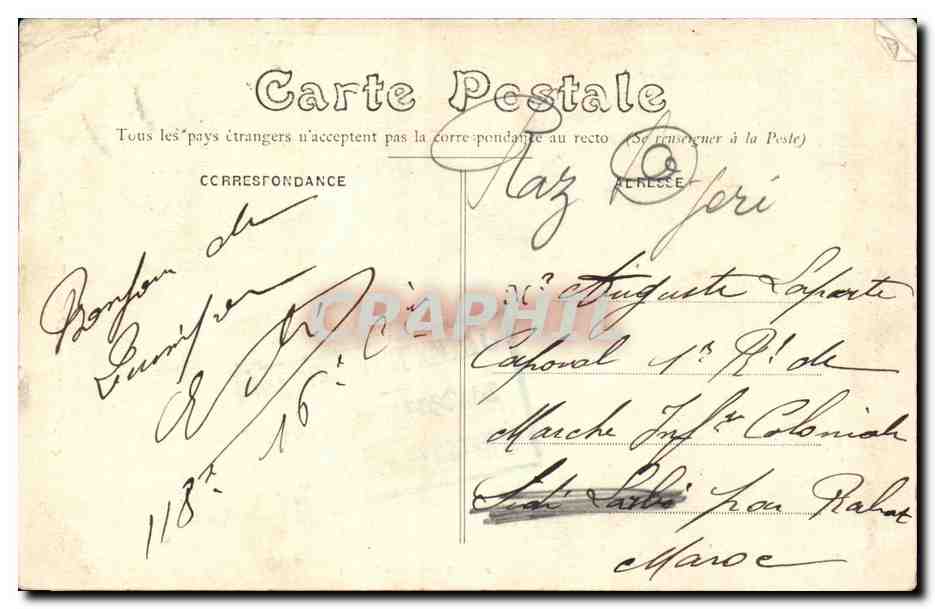 Carte Postale
Tous les pays étrangers n'acceptent pas la correspondance au recto (Se renseigner à la Poste)
CORRESPONDANCE
ADRESSE
Raz
Bonjour de
Quimper
118e 16e Cie
Mr Auguste Laparte
Caporal 1er Rt de
Marche Infie Coloniale
Sidi Larbi par Rabat
Maroc
CPARPHIL